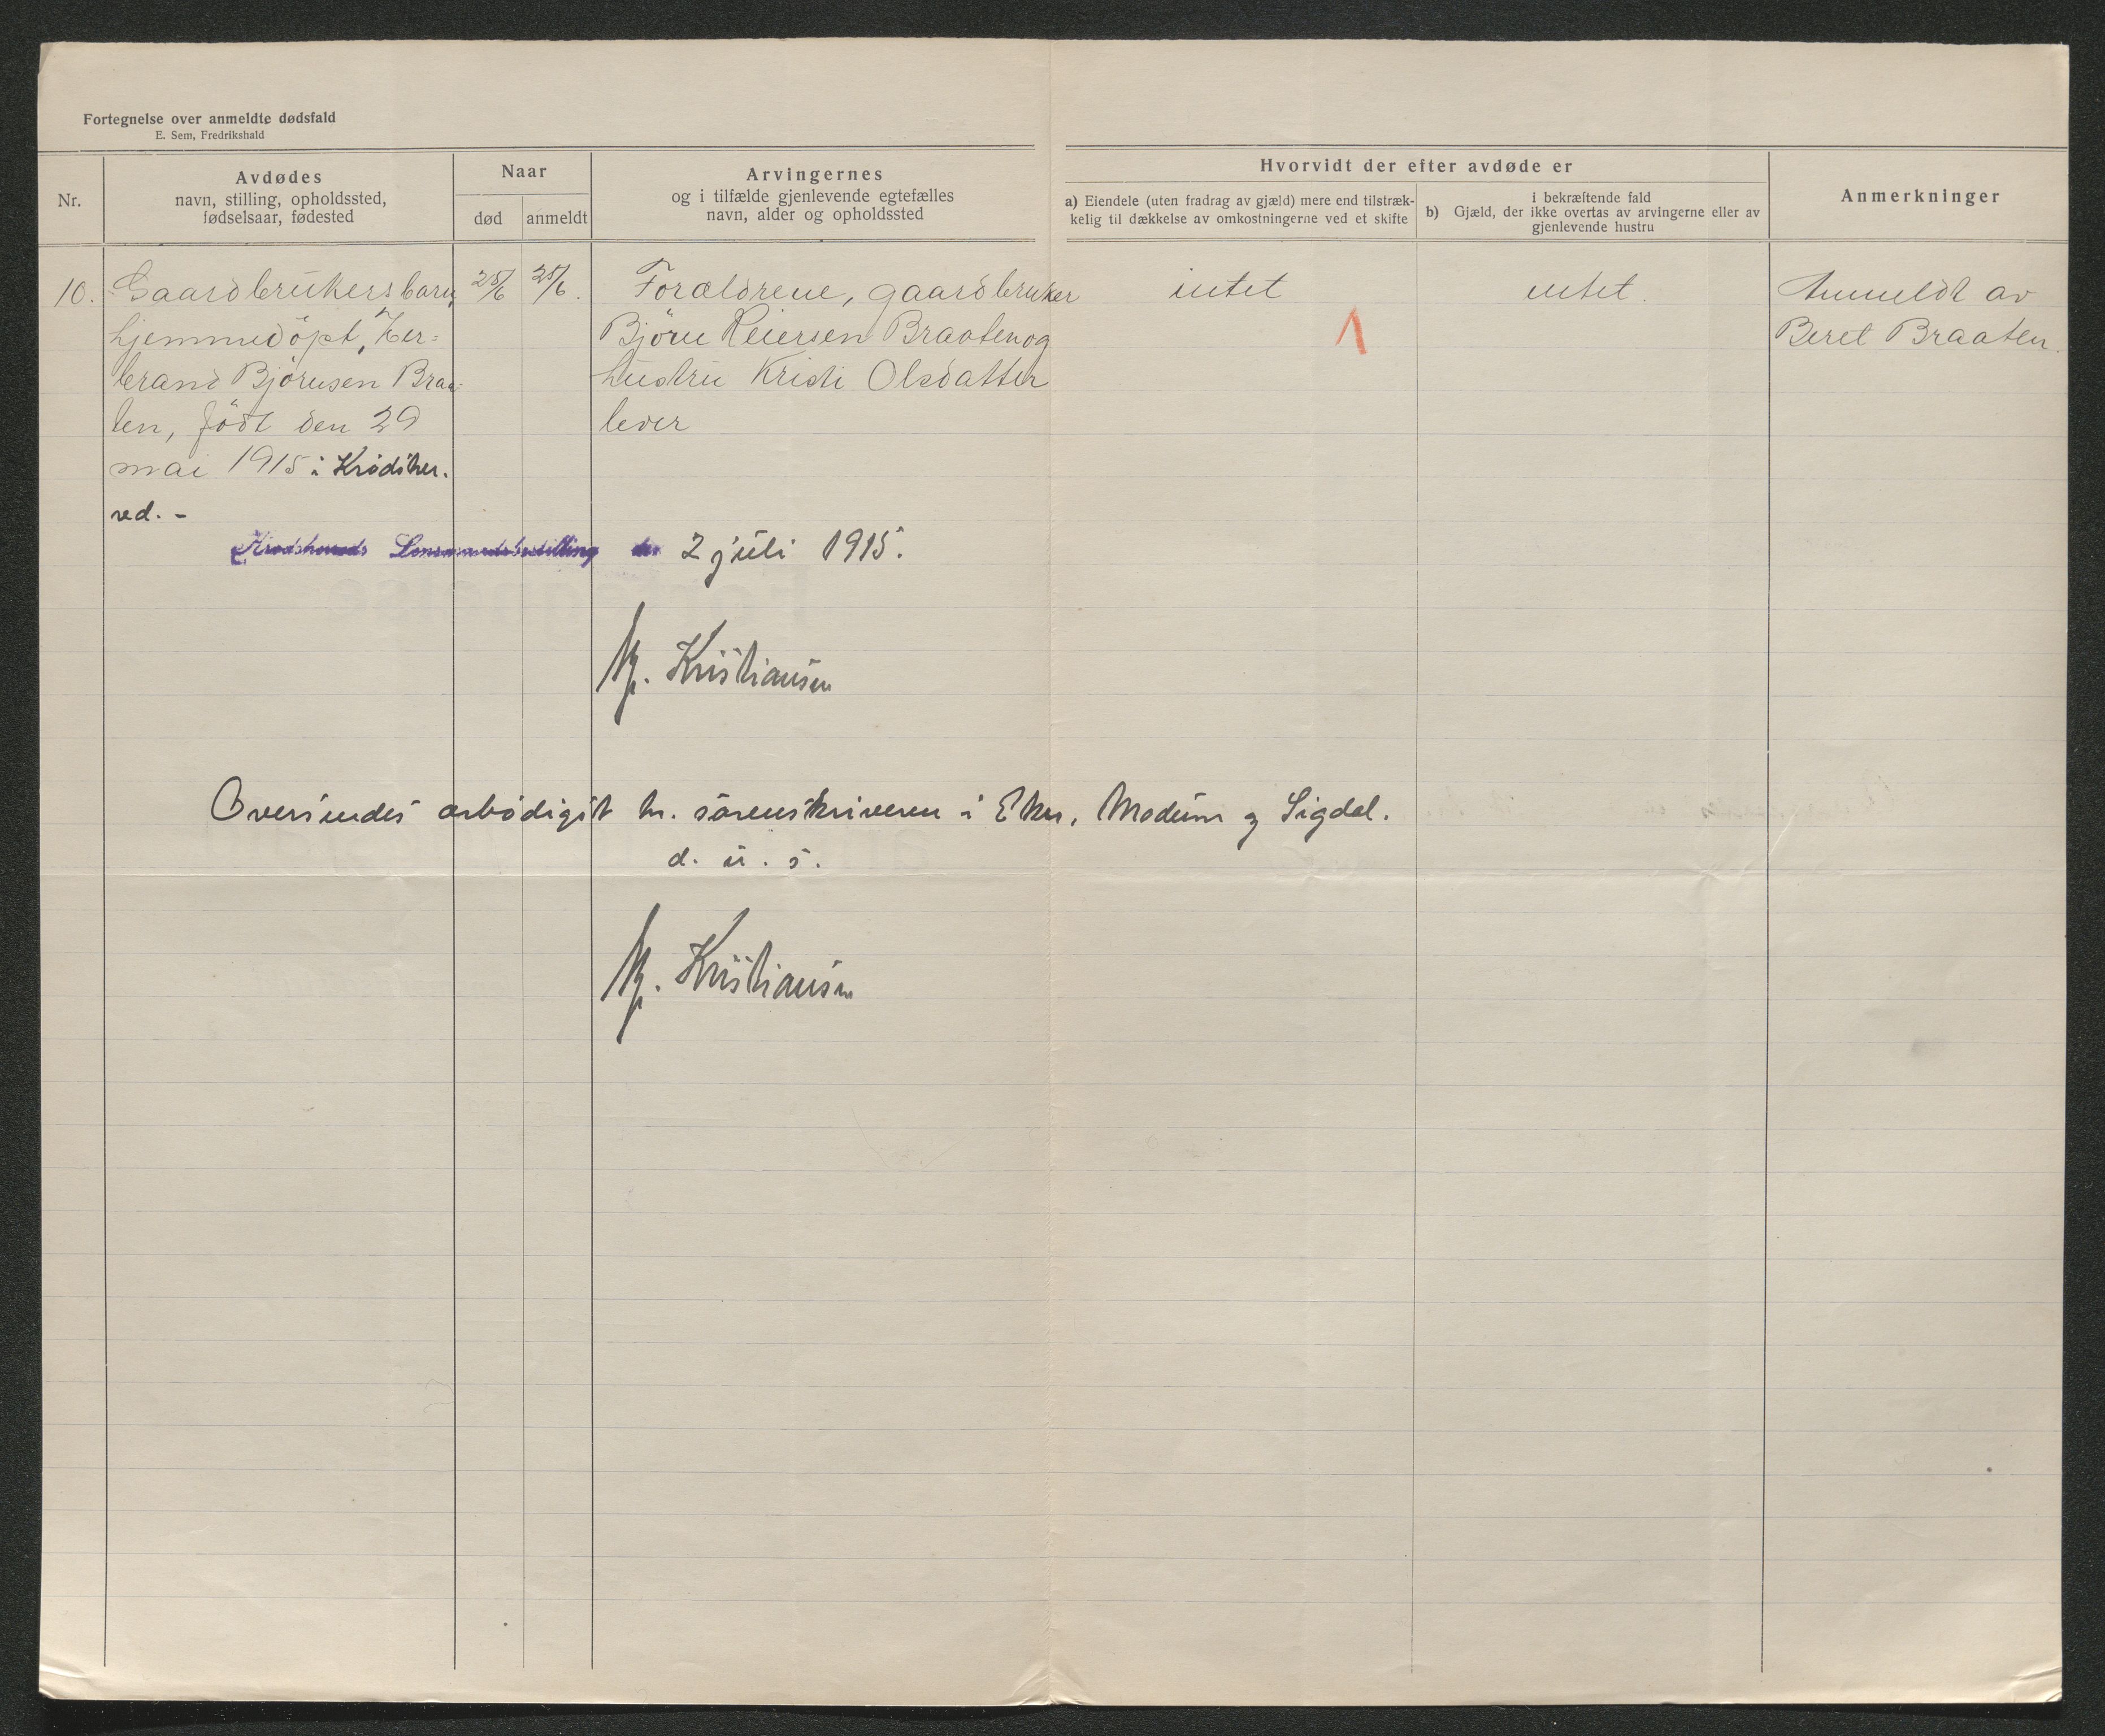 Fortegnelse over anmeldte dødsfald
E. Sem, Fredrikshald
Nr.
Avdødes
navn, stilling, opholdssted,
fødselsaar, fødested
Naar
død
anmeldt
Arvingernes
og i tilfælde gjenlevende egtefælles
navn, alder og opholdssted
Hvorvidt der efter avdøde er
a) Eiendele (uten fradrag av gjæld) mere end tilstræk-
kelig til dækkelse av omkostningerne ved et skifte
i bekræftende fald
b) Gjæld, der ikke overtas av arvingerne eller av
gjenlevende hustru
Anmerkninger
10.
Gaardbrukersbarn,
hjemmedöpt, Her=
brand Björnsen Braa-
ten, födt den 29
mai 1915 i Krødsher-
red. -
25/6
25/6.
Forældrene, gaardbruker
Björn Reiersen Braaten og
hustru Kristi Olsdatter
lever
intet
1
intet.
Anmeldt av
Beret Braaten.
Krødsherreds Lensmandsbestilling den 2 juli 1915.
Kristiansen
Oversendes ærbødigst hr. sorenskriveren i Eker, Modum og Sigdal.
d. u. s.
Kristiansen